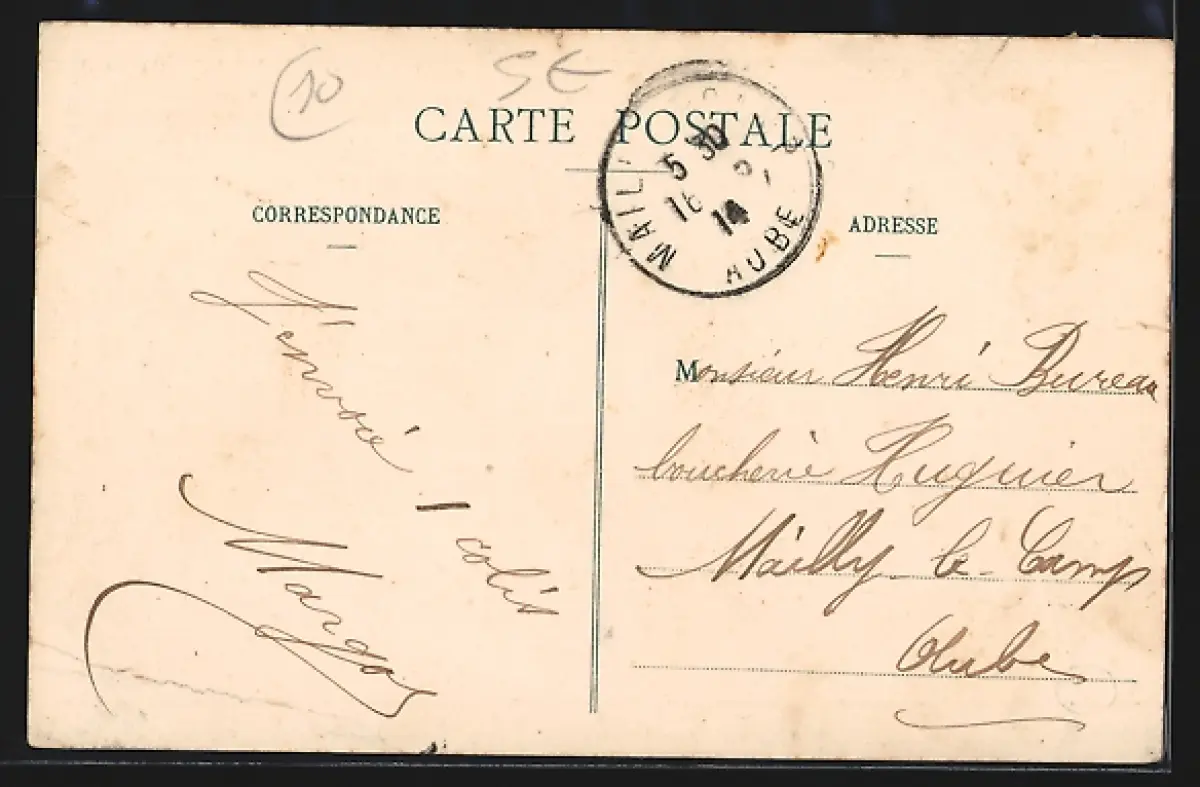 10
SE
CARTE POSTALE
MAILLY
5 30
16
14
AUBE
CORRESPONDANCE
ADRESSE
J'envoie 1 colis
Margot
Monsieur Henri Bureau
boucherie Huguier
Mailly-le-Camp
Aube